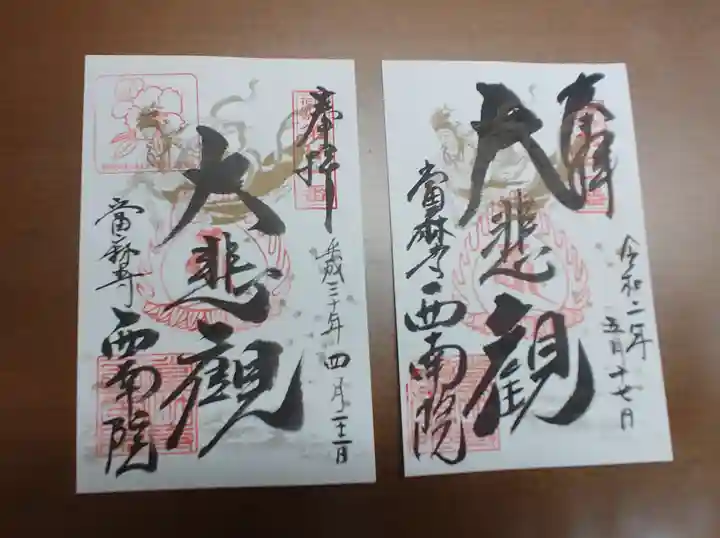 奉拝
平成三十年四月二十一日
大悲観
當麻寺
西南院
奉拝
令和二年
五月十七日
大悲観
當麻寺
西南院